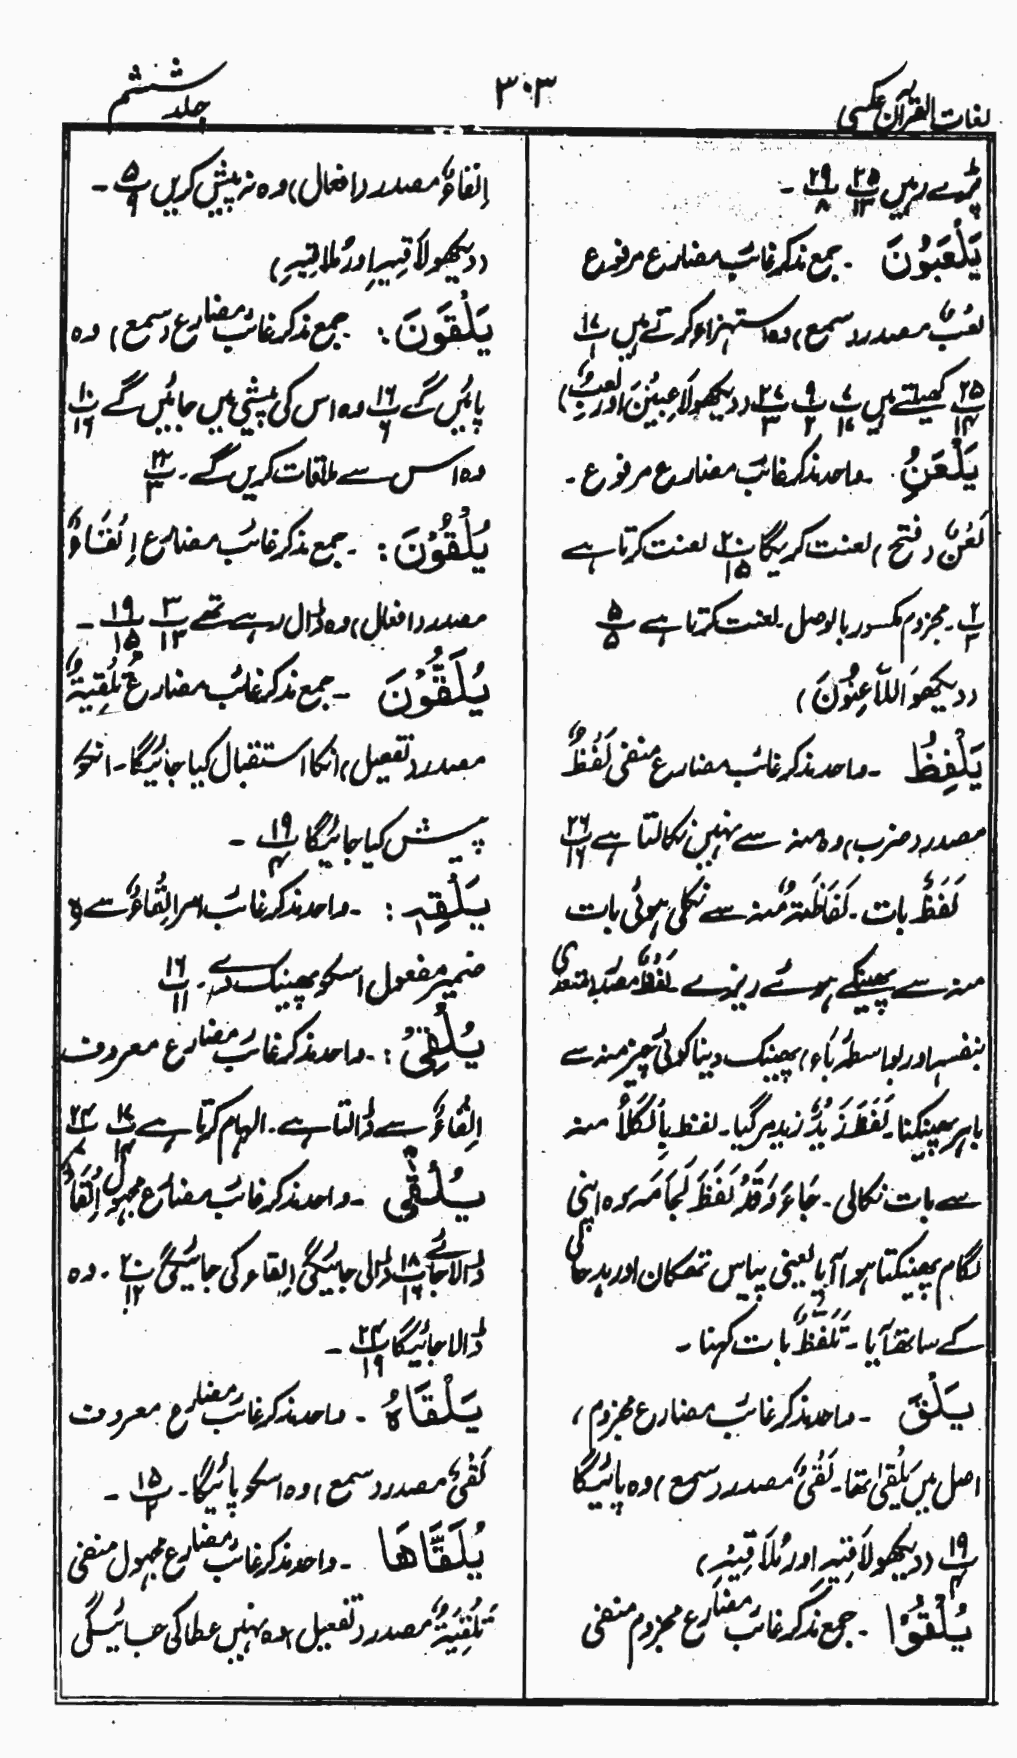 لغات القرآن عکسی
۳۰۳
جلد ششم
پڑے رہیں ۲۵/۱۳ ۲۹/۸ ۔
یَلْعَبُوْنَ ۔ جمع مذکر غائب مضارع مرفوع
لعبٌ مصدر (سمع) وہ استہزاء کرتے ہیں ۱۷/۲
۲۵/۱۴ کھیلتے ہیں ۷/۱۷ ۹/۲ ۲۷/۳ (دیکھو لَاعِبِیْنَ اور لَعِبٌ)
یَلْعَنُ ۔ واحد مذکر غائب مضارع مرفوع ۔
لَعْنٌ (فتح) لعنت کریگا ۲۰/۱۵ لعنت کرتا ہے
۲/۳ ۔ مجزوم مکسور بالوصل ۔ لعنت کرتا ہے ۵/۵
(دیکھو اَللَّاعِنُوْنَ)
یَلْفِظُ ۔ واحد مذکر غائب مضارع منفی لَفْظٌ
مصدر (ضرب) وہ منہ سے نہیں نکالتا ہے ۲۶/۱۶
لَفْظٌ بات ۔ لَفَاظَۃٌ منہ سے نکلی ہوئی بات
منہ سے پھینکے ہوئے ریزے لَفْظٌ مصدر (متعدی
بنفسہ اور بواسطہ بَاء) پھینک دینا کوئی چیز منہ سے
باہر پھینکنا ۔ لَفَظَ زَیْدٌ زید مر گیا ۔ لفظ بِالْکَلَامِ منہ
سے بات نکالی ۔ جَاءَ وَقَدْ لَفَظَ لِجَامَہٗ وہ اپنی
لگام پھینکتا ہوا آیا یعنی پیاس تھکان اور بدحالی
کے ساتھ آیا ۔ تَلَفُّظٌ بات کہنا ۔
یَلْقَ ۔ واحد مذکر غائب مضارع مجزوم،
اصل میں یَلْقٰی تھا ۔ لَقْیٌ مصدر (سمع) وہ پائیگا
۱۹/۴ (دیکھو لَاقِیْہِ اور مُلَاقِیْہِ)
یُلْقُوْا ۔ جمع مذکر غائب مضارع مجزوم منفی
اِلْقَاءٌ مصدر (افعال) وہ نہ پیش کریں ۵/۹ ۔
(دیکھو لَاقِیْہِ اور مُلَاقِیْہِ)
یَلْقَوْنَ : جمع مذکر غائب مضارع (سمع) وہ
پائیں گے ۱۶/۶ وہ اس کی پیشی میں جائیں گے ۱۰/۱۶
وہ اس سے ملاقات کریں گے ۔ ۲۲/۳
یُلْقُوْنَ : جمع مذکر غائب مضارع اِلْقَاءٌ
مصدر (افعال) وہ ڈال رہے تھے ۳/۱۳ ۱۹/۱۵ ۔
یُلَقَّوْنَ ۔ جمع مذکر غائب مضارع تَلْقِیَۃٌ
مصدر (تفعیل) انکا استقبال کیا جائیگا ۔ انکو
پیش کیا جائیگا ۱۹/۴ ۔
یُلْقِہِ : ۔ واحد مذکر غائب امر اِلْقَاءٌ سے ہٖ
ضمیر مفعول اسکو پھینک دے ۔ ۱۶/۱۱
یُلْقِیْ : ۔ واحد مذکر غائب مضارع معروف
اِلْقَاءٌ سے ڈالتا ہے ۔ الہام کرتا ہے ۱۷/۱۴ ۲۴/۷
یُلْقٰی ۔ واحد مذکر غائب مضارع مجہول اِلْقَاءٌ
ڈالا جائے ۱۸/۱۶ ڈالی جائیگی اِلقاء کی جائیگی ۲۰/۱۲ ۔ وہ
ڈالا جائیگا ۲۴/۱۹ ۔
یَلْقَاہُ ۔ واحد مذکر غائب مضارع معروف
لَقْیٌ مصدر (سمع) وہ اسکو پائیگا ۔ ۱۵/۲ ۔
یُلَقَّاھَا ۔ واحد مذکر غائب مضارع مجہول منفی
تَلْقِیَۃٌ مصدر (تفعیل) وہ نہیں عطا کی جائیگی